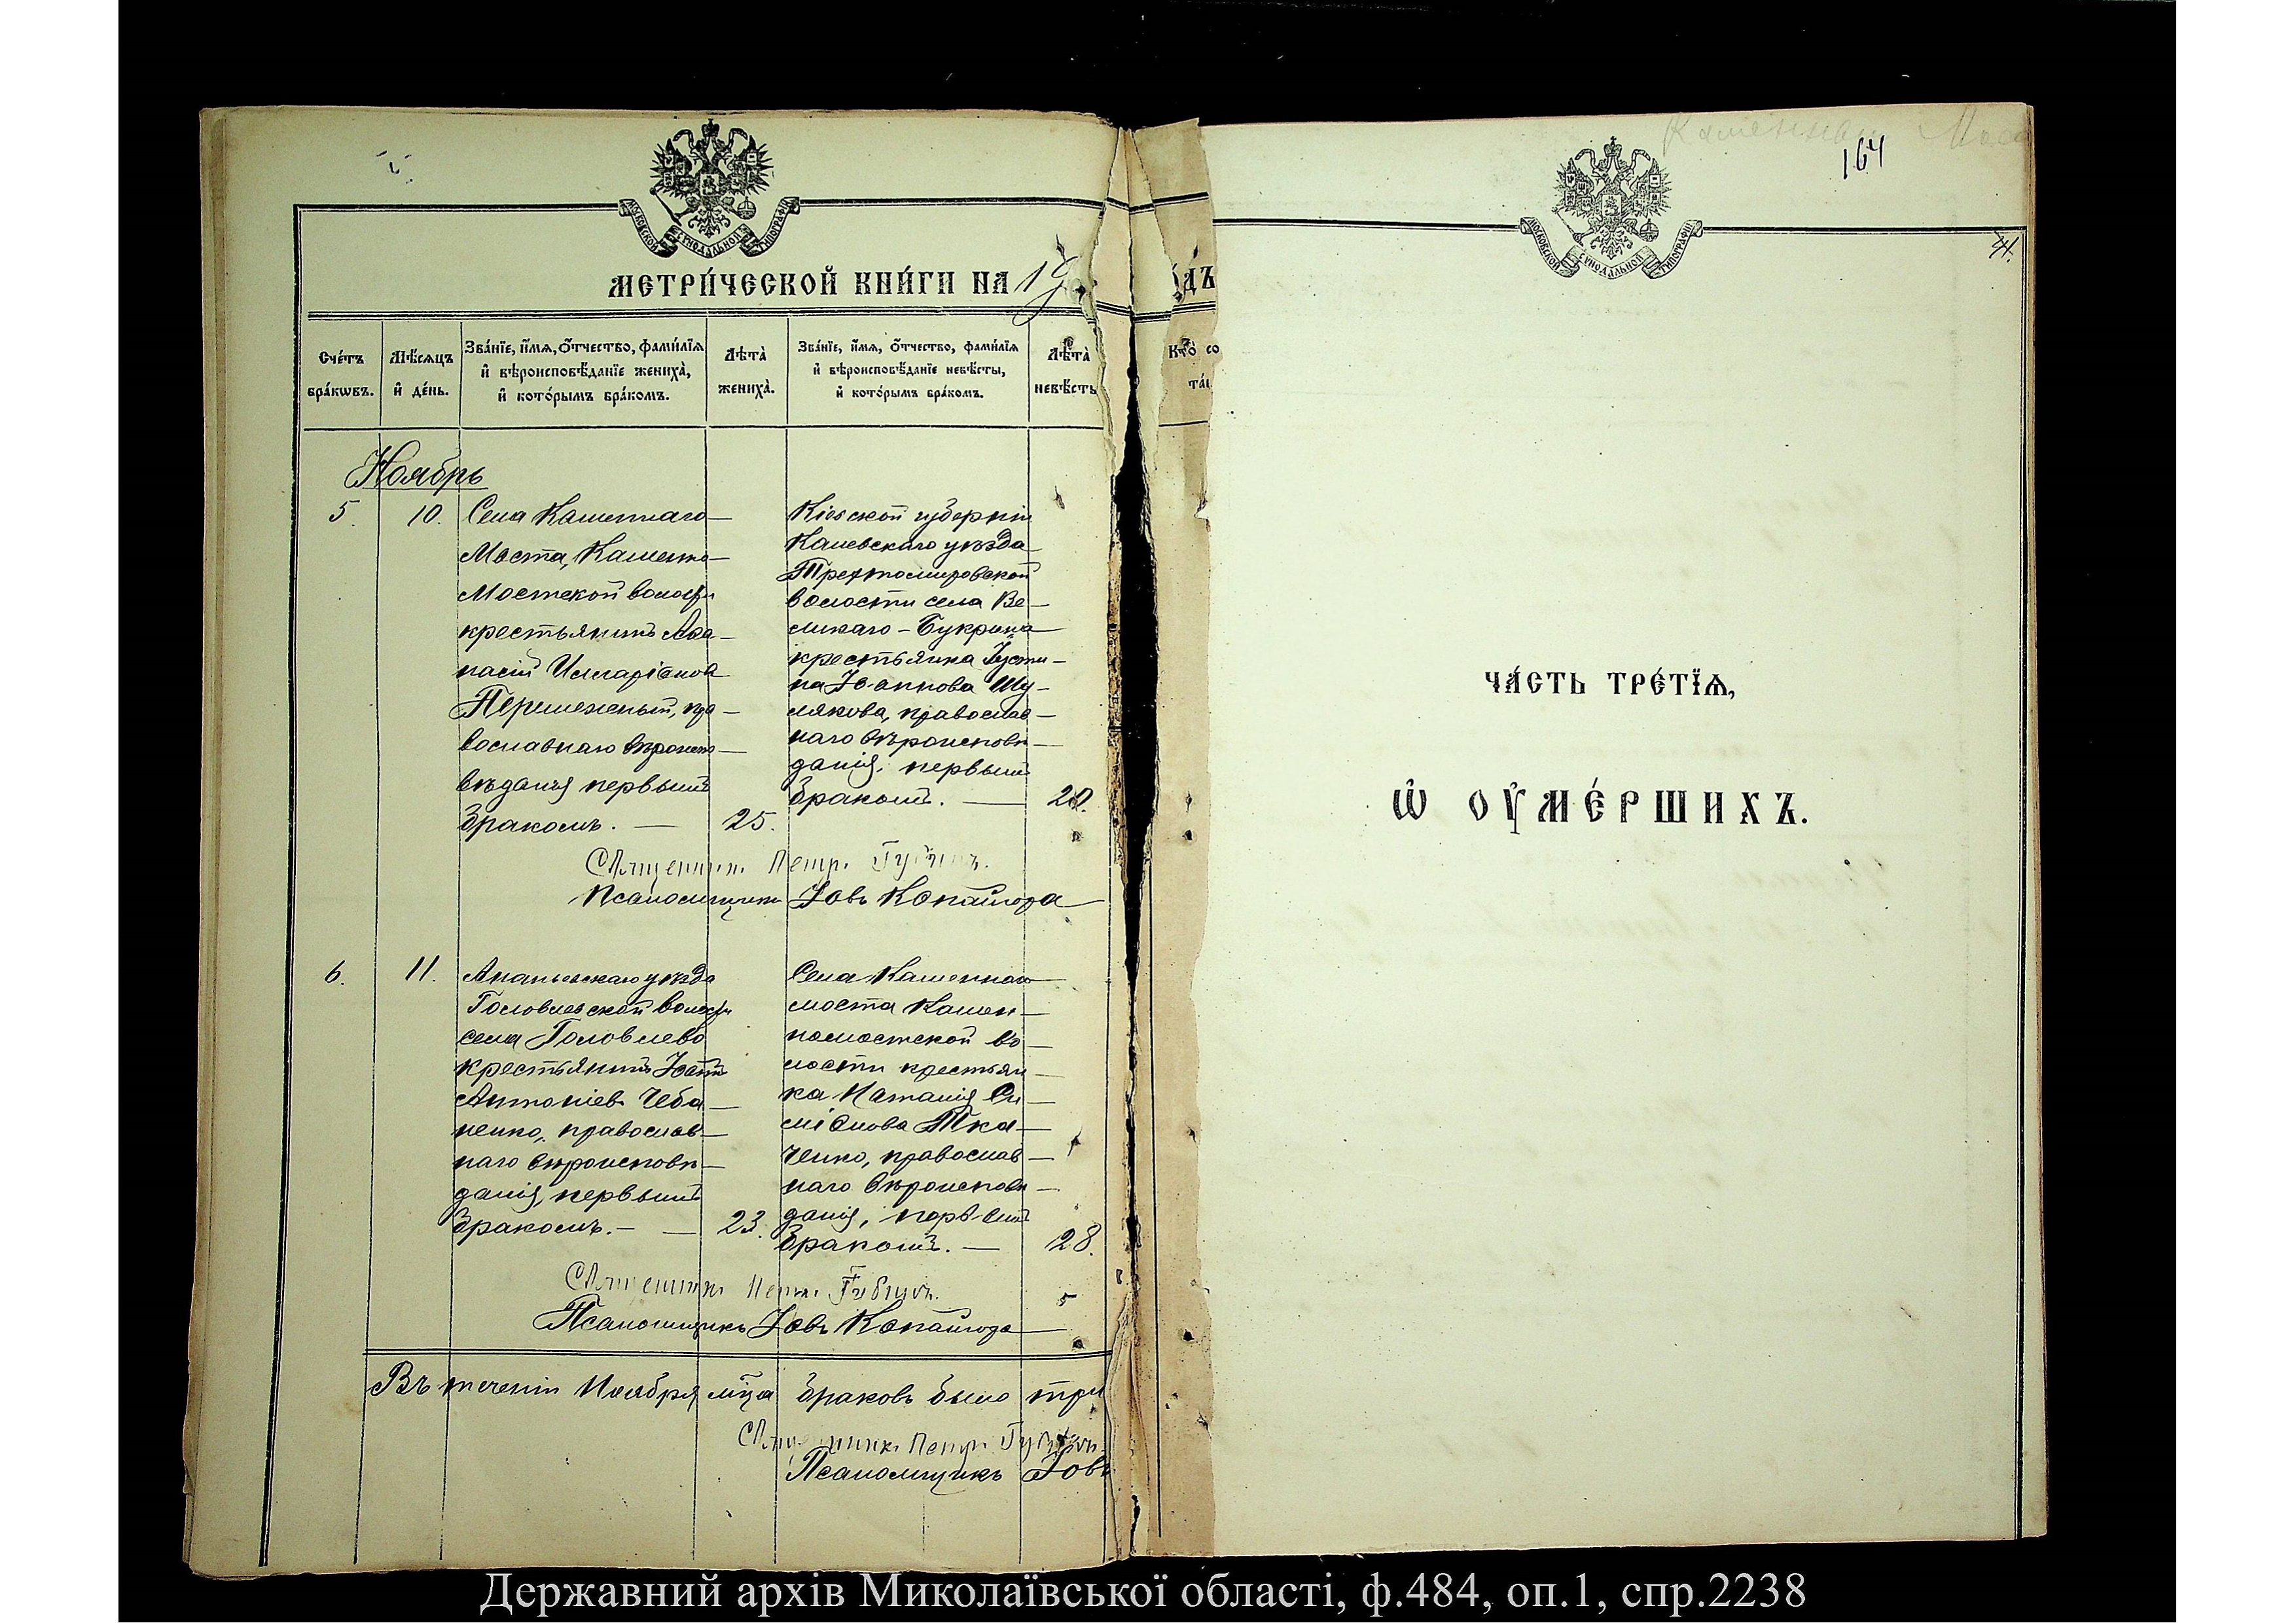 МОСКОВСКОЙ СѴНОДАЛЬНОЙ ТИПОГРАФІИ
МЕТРИ́ЧЕСКОЙ КНИ́ГИ НА 19
Сче́тъ бра́кѡвъ.
Мѣ́сяцъ и҆ де́нь.
Зва́нїе, и҆́мѧ, ѻ҆́тчество, фами́лїѧ и҆ вѣроисповѣ́данїе жениха̀, и҆ кото́рымъ бра́комъ.
Лѣта̀ жениха̀.
Зва́нїе, и҆́мѧ, ѻ҆́тчество, фами́лїѧ и҆ вѣроисповѣ́данїе невѣ́сты, и҆ кото́рымъ бра́комъ.
Лѣта̀ невѣ́сты
Ноябрь
5.
10.
Села Каменнаго
Моста, Каменно-
Мостской волости
крестьянинъ Аѳа-
насій Илларіоновъ
Перемежный, пра-
вославнаго вѣроиспо-
вѣданія первымъ
бракомъ. —
25.
Кіевской губерніи
Каневскаго уѣзда
Трехтомировской
волости села Ве-
ликаго-Букрина
крестьянка Іусти-
на Іоаннова Шу-
лякова, православ-
наго вѣроисповѣ-
данія, первымъ
бракомъ. —
20.
Священникъ Петръ
Псаломщикъ Іовъ Копайгора
6.
11.
Ананьевскаго уѣзда
Головлевской волости
села Головлево
крестьянинъ Іоаннъ
Антоніевъ Чеба-
ненко, православ-
наго вѣроисповѣ-
данія, первымъ
бракомъ. —
23.
Села Каменнаго
моста Камен-
номостской во-
лости крестьян-
ка Наталія Си-
меонова Тка-
ченко, православ-
наго вѣроисповѣ-
данія, первымъ
бракомъ. —
28.
Священникъ Петръ
5
Псаломщикъ Іовъ Копайгора
Въ теченіи Ноября мѣсца браковъ было три
Священникъ Петръ
Псаломщикъ Іовъ
дъ
Кто̀ со
та́и
Каменный Мос
164
МОСКОВСКОЙ СѴНОДАЛЬНОЙ ТИПОГРАФІИ
ЧА́СТЬ ТРЕ́ТЇѦ,
Ѡ҆ ОУ҆МЕ́РШИХЪ.
Державний архів Миколаївської області, ф.484, оп.1, спр.2238